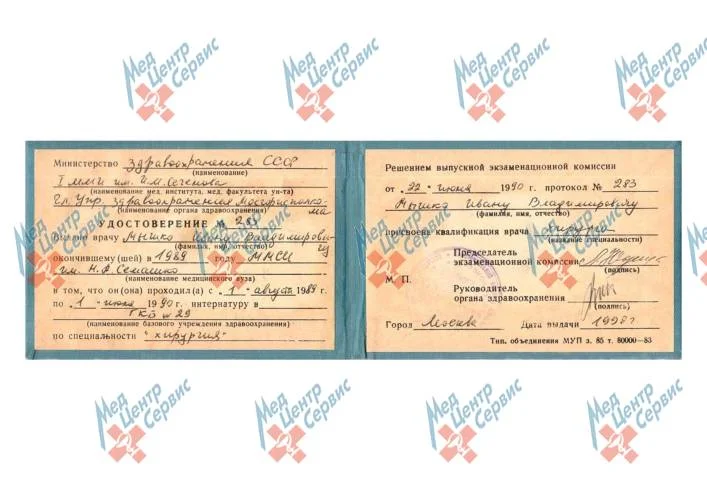 Мед
Центр
Сервис
Министерство здравоохранения СССР
(наименование)
I ММИ им. И.М. Сеченова
(наименование мед. института, мед. факультета ун-та)
Гл. Упр. здравоохранения Мосгорисполко-
ма
(наименование органа здравоохранения)
УДОСТОВЕРЕНИЕ № 283
Выдано врачу Мышко Ивану Владимирович
у
(фамилия, имя, отчество)
окончившему (шей) в 1989 году ММСИ
им. Н.А. Семашко
(наименование медицинского вуза)
в том, что он(она) проходил(а) с „ 1 " августа 1989 г.
по „ 1 " июля 1990 г. интернатуру в
ГКБ № 29
(наименование базового учреждения здравоохранения)
по специальности "хирургия"
Решением выпускной экзаменационной комиссии
от „ 22 " июня 1990 г. протокол № 283
Мышко Ивану Владимировичу
(фамилия, имя, отчество)
присвоена квалификация врача хирурга
(название специальности)
Председатель
экзаменационной комиссии
(подпись)
М. П.
Руководитель
органа здравоохранения
(подпись)
Город Москва Дата выдачи 1990 г
Тип. объединения МУП з. 85 т. 80000—83